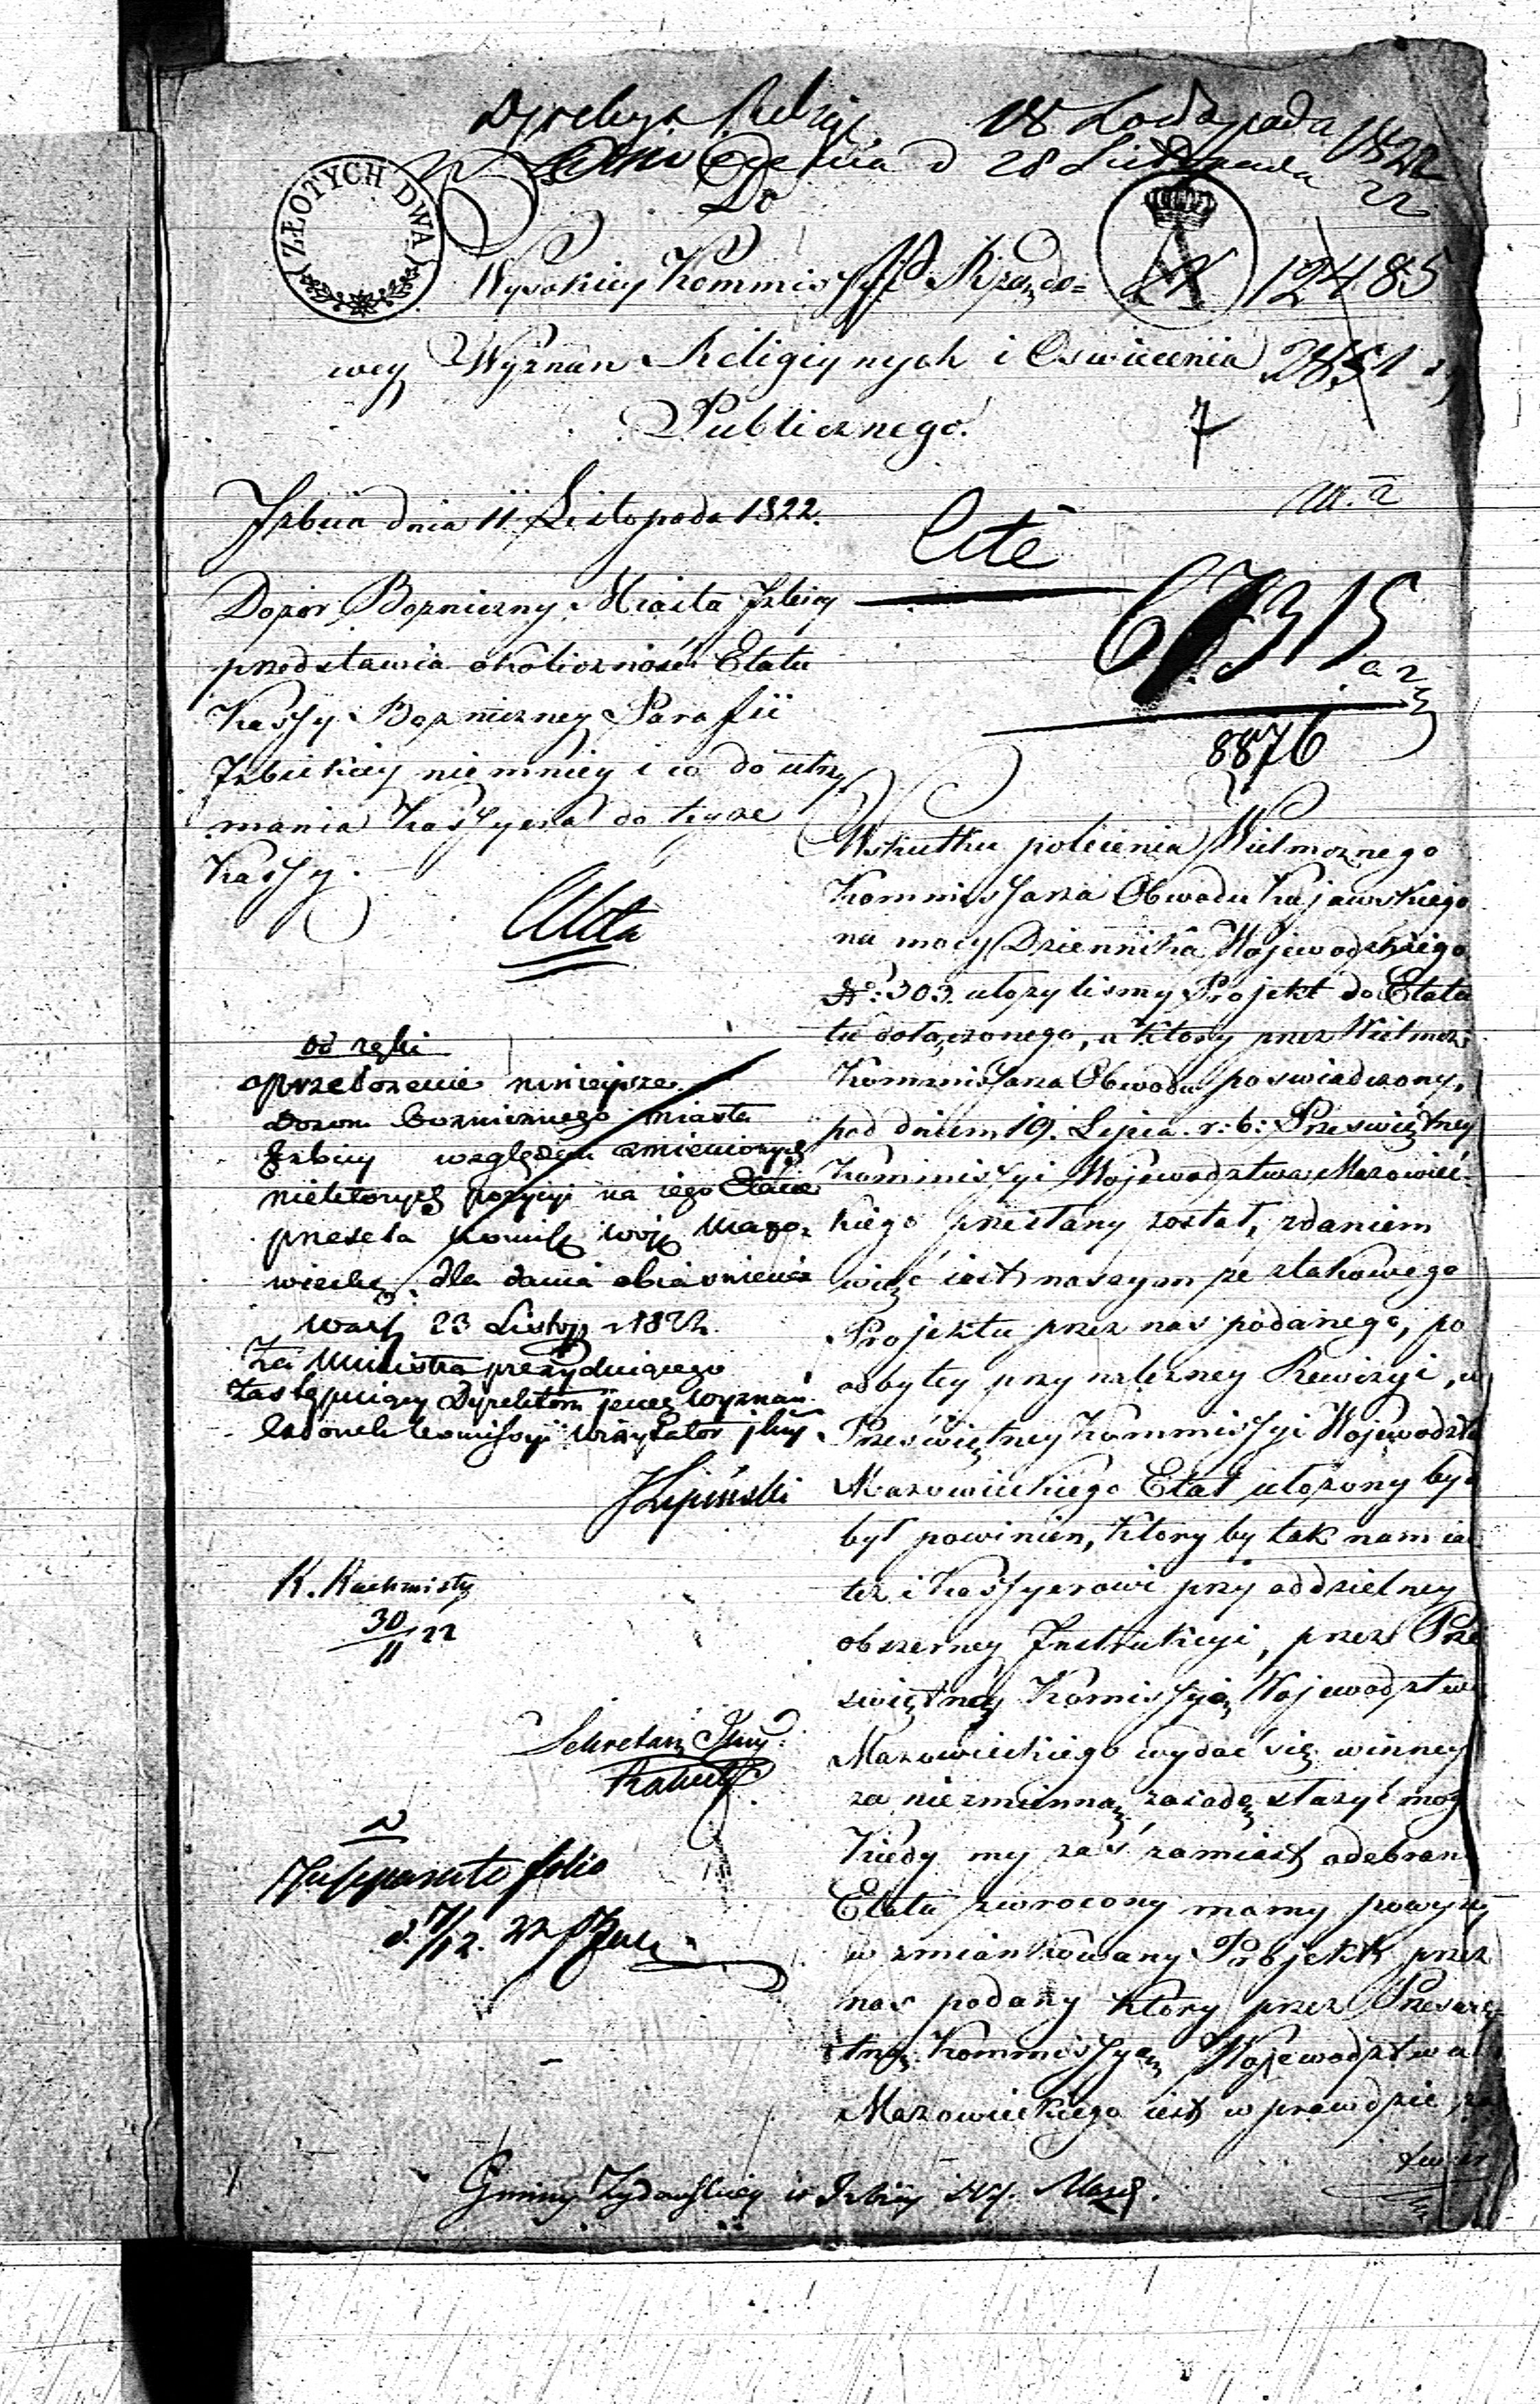 Dyrekcya Religij 18 Listopada 1822
d 28 Listopada 22
Do
ZŁOTYCH DWA
Wysokiey Kommissyi Rządo=
12485
wey Wyznań Religiynych i Oswiecenia
2851
Publicznego.
7
Izbica dnia 11 Listopada 1822.
Cite
Dozór Bozniczny Miasta Izbicy
przedstawia okoliczność Etatu
Kassy Bozniczney Parafii
Izbickiey niemniey i co do utrzy
mania Kassyera do teyże
Kassy.
67315
8876
Acta
od ręki
przełożenie ninieysze
Dozoru Bozniczego miasta
Izbicy względem zmienionych
niektorych pozycyi na iego Etacie
przeseła Kommiss Woje Mazo=
wieckiey dla dania obiasnienia
Warsz 23 Listop 1822.
Za Ministra prezyduiącego
Zastępuiący Dyrektora jener Wyznań
Członek Komissyi Wizytator jlny
JLipiński
K. Rachmistrz
30/11 22
Sekretarz Jlny
N
In separato folio
d. 7/12. 22
Wskutku polecenia Wielmożnego
Kommissarza Obwodu Kujawskiego
na mocy Dziennika Wojewodzkiego
No: 303. ułożylismy Projekt do Etatu
tu dołączonego, a który przez Wielmoż
Kommissarza Obwodu poswiadczony,
pod dniem 19. Lipca. r: b: Przeswiętney
Kommissyi Wojewodztwa Mazowiec=
kiego przesłany został, zdaniem
więc iest naszym że z takowego
Projektu przez nas podanego, po
odbytey przynależney Rewizyi, w
Przeświętney Kommissyi Wojewodztwa
Mazowieckiego Etat ułożony był
był powinien, który by tak nam ia
też i Kassyerowi przy oddzielney
obszerney Instrukcyi, przez Prze
świętną Komissyią Wojewodztwa
Mazowieckiego wydać się winney
za niezmienną zasadę służyć mog
Kiedy my zaś zamiast odebran
Etatu zwrocony mamy powyżey
wzmiankowany Projekt przez
nas podany który przez Przeswię
tną Kommissyą Wojewodztwa
Mazowieckiego iest w prawdzie
Gminy Żydowskiey w Izbicy W. Maz.